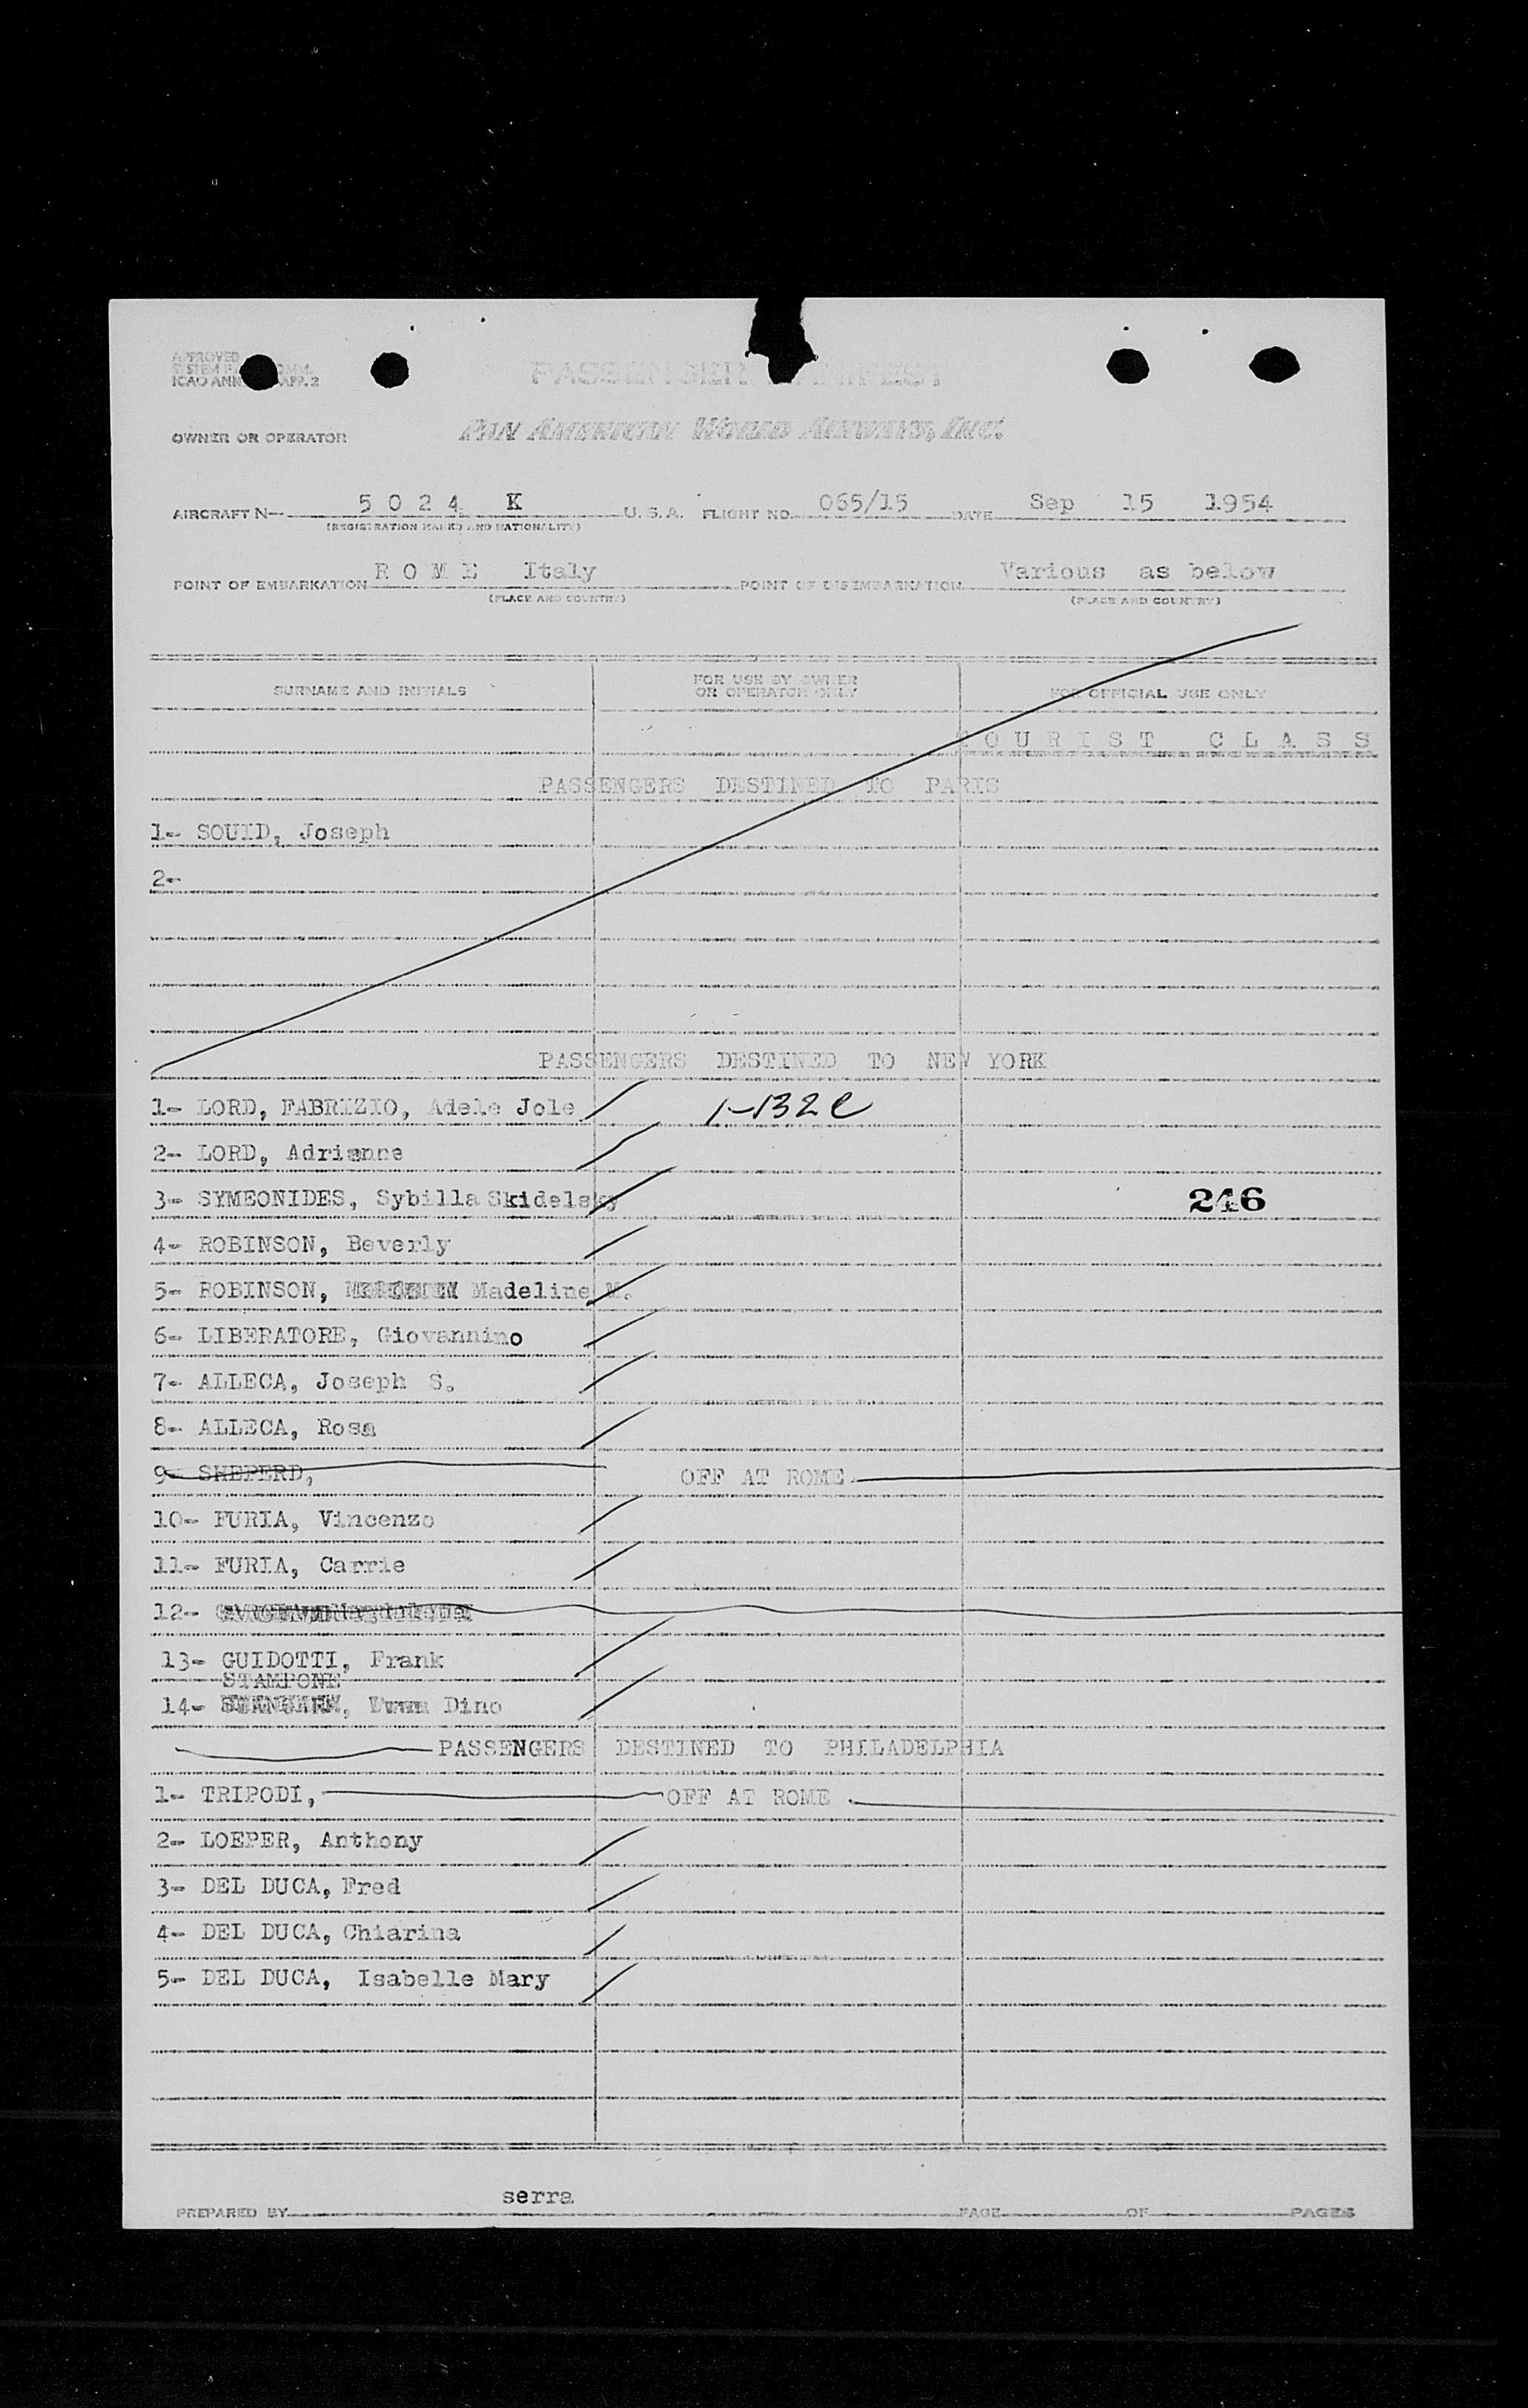 APPROVED
ICAO ANN APP. 2
PASSENGER MANIFEST
OWNER OR OPERATOR PAN AMERICAN WORLD AIRWAYS, INC.
AIRCRAFT N- 5 0 2 4 K U. S. A. FLIGHT NO. 065/15 DATE Sep 15 1954
(REGISTRATION MARKS AND NATIONALITY)
POINT OF EMBARKATION R O M E Italy POINT OF DISEMBARKATION Various as below
(PLACE AND COUNTRY) (PLACE AND COUNTRY)
SURNAME AND INITIALS FOR USE BY OWNER OR OPERATOR ONLY FOR OFFICIAL USE ONLY
T O U R I S T C L A S S
PASSENGERS DESTINED TO PARIS
1- SOUID, Joseph
2-
PASSENGERS DESTINED TO NEW YORK
1- LORD, FABRIZIO, Adele Jole 1-132C
2- LORD, Adrianne
3- SYMEONIDES, Sybilla Skidelsky 246
4- ROBINSON, Beverly
5- ROBINSON, Madeline M.
6- LIBERATORE, Giovannino
7- ALLECA, Joseph S.
8- ALLECA, Rosa
9- SHEPERD, OFF AT ROME.
10- FURIA, Vincenzo
11- FURIA, Carrie
12-
13- GUIDOTTI, Frank
STAMPONE
14- , Dino
PASSENGERS DESTINED TO PHILADELPHIA
1- TRIPODI, OFF AT ROME .
2- LOEPER, Anthony
3- DEL DUCA, Fred
4- DEL DUCA, Chiarina
5- DEL DUCA, Isabelle Mary
PREPARED BY serra PAGE OF PAGES